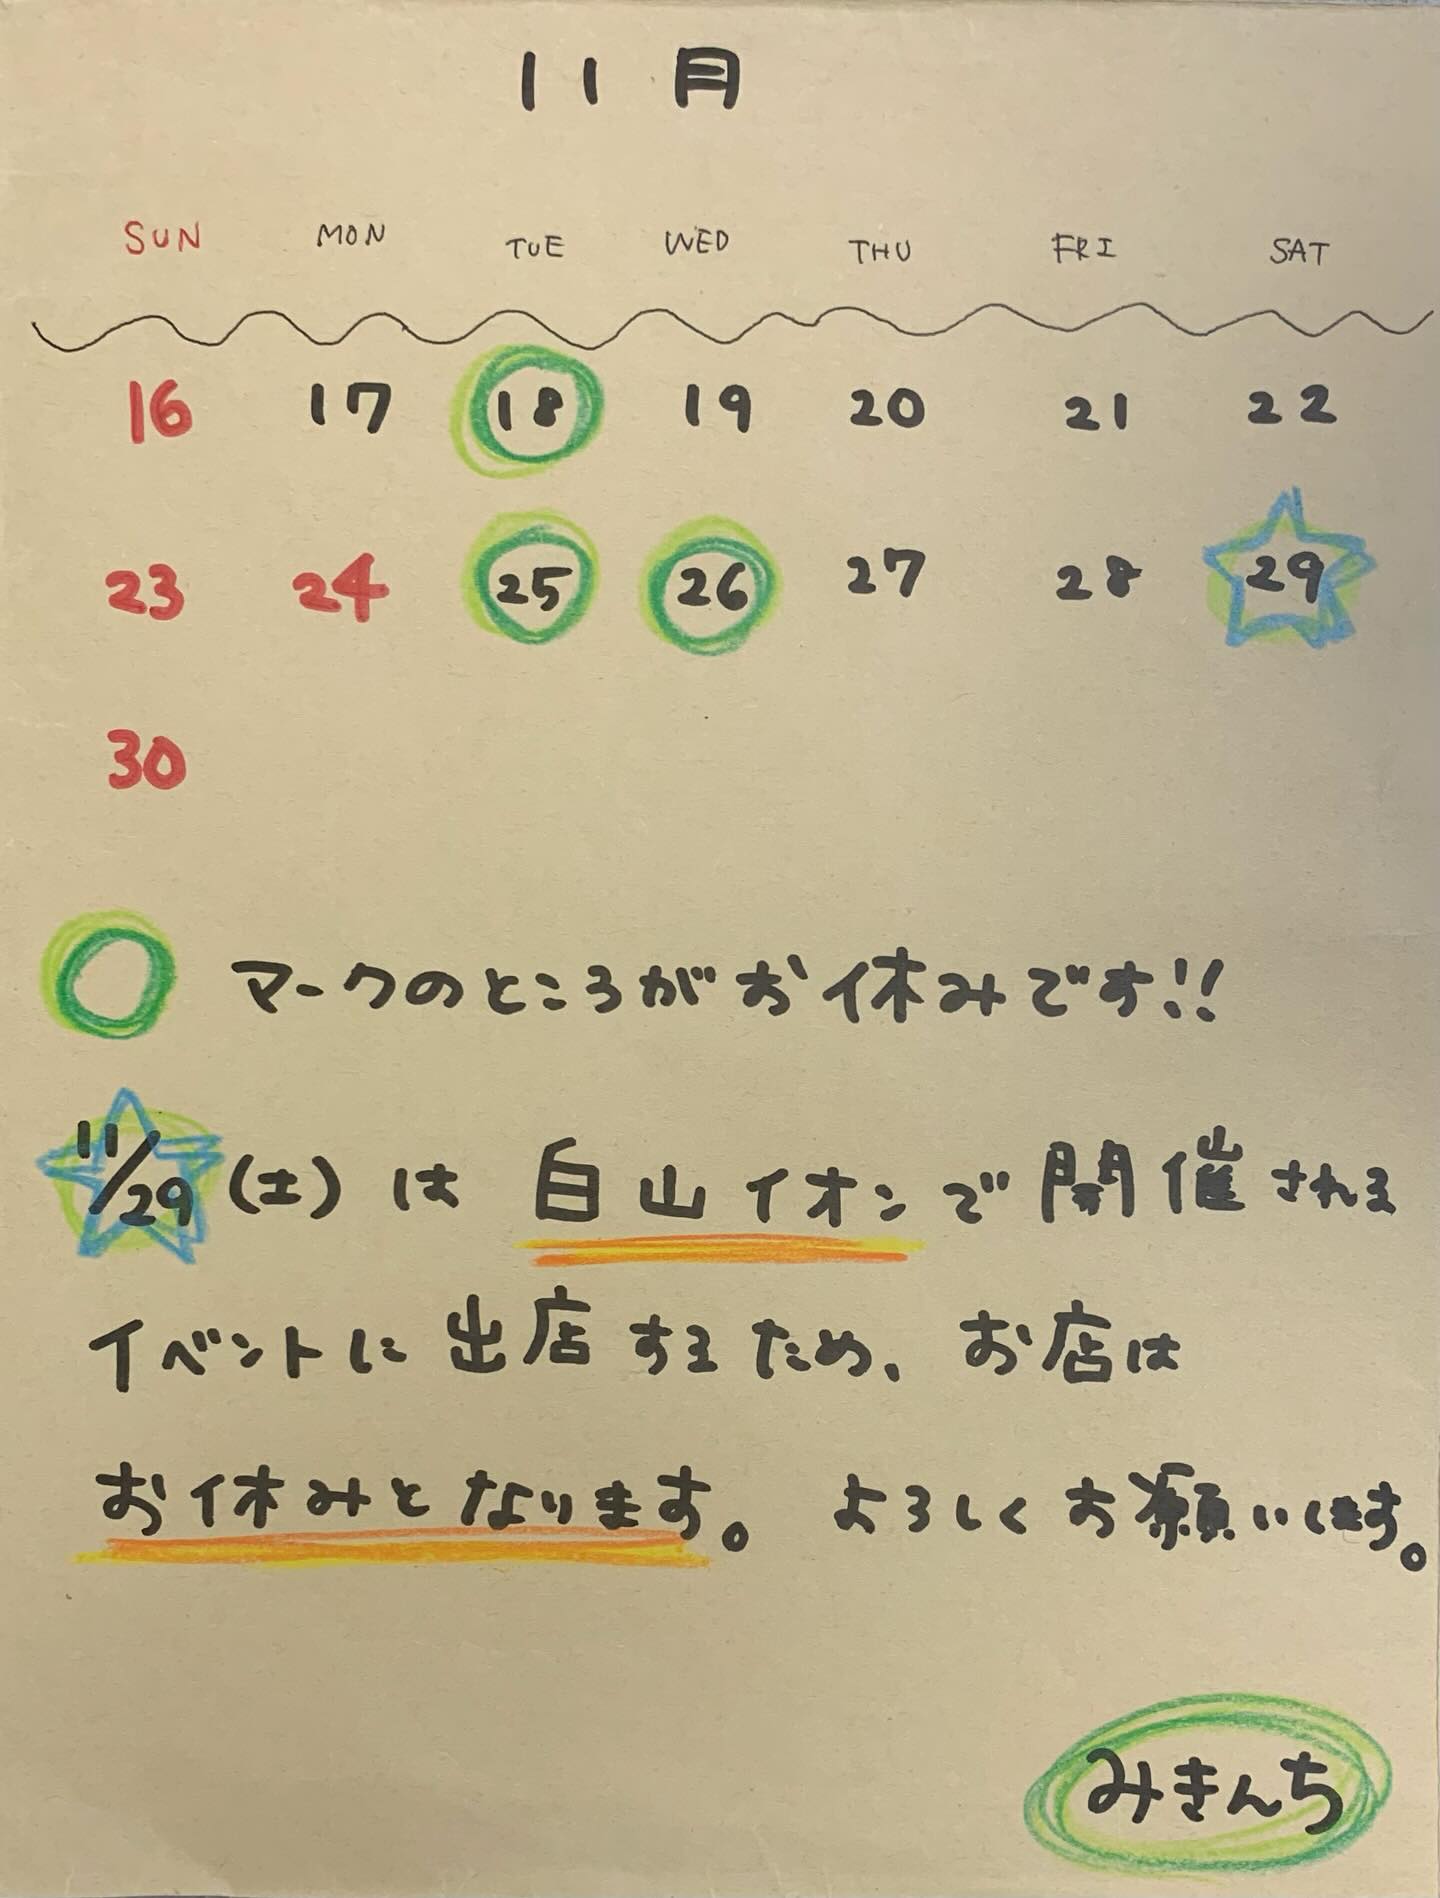 11月
SUN MON TUE WED THU FRI SAT
16 17 18 19 20 21 22
23 24 25 26 27 28 29
30
マークのところがお休みです!!
11/29(土)は白山イオンで開催される
イベントに出店するため、お店は
お休みとなります。よろしくお願いします。
みきんち